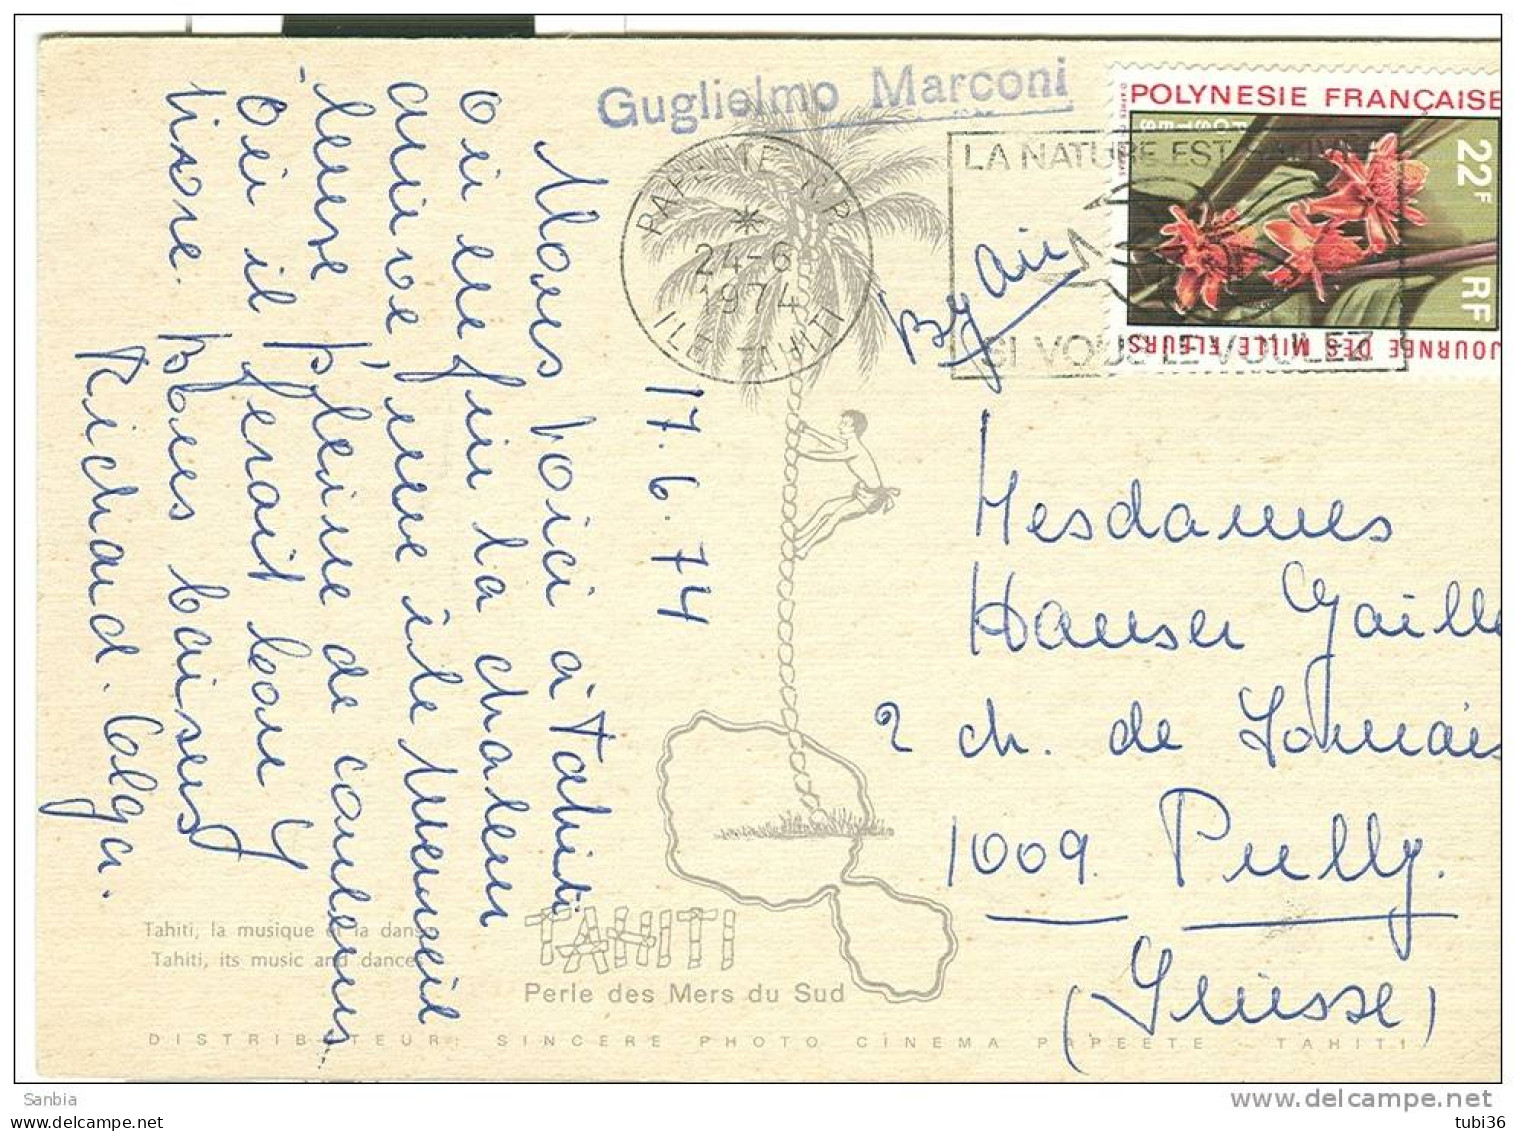 Guglielmo Marconi
PAPEETE R.P.
24-6
1974
ILE TAHITI
LA NATURE EST
SI VOUS LE VOULEZ
POLYNESIE FRANÇAISE
POSTES
22F
RF
JOURNÉE DES MILLE FLEURS
By Air
17.6.74
Nous voici à Tahiti
où enfin la chaleur
arrive, une île merveil
leuse pleine de couleurs
où il ferait bon y
vivre. Bons baisers
Richard. Olga.
Mesdames
Hauser Gaille
2 ch. de
1009. Pully.
(Suisse)
Tahiti, la musique et la danse
Tahiti, its music and dances
TAHITI
Perle des Mers du Sud
DISTRIBUTEUR: SINCERE PHOTO CINEMA PAPEETE - TAHITI
Sanbia
delcampe.net
tubi36